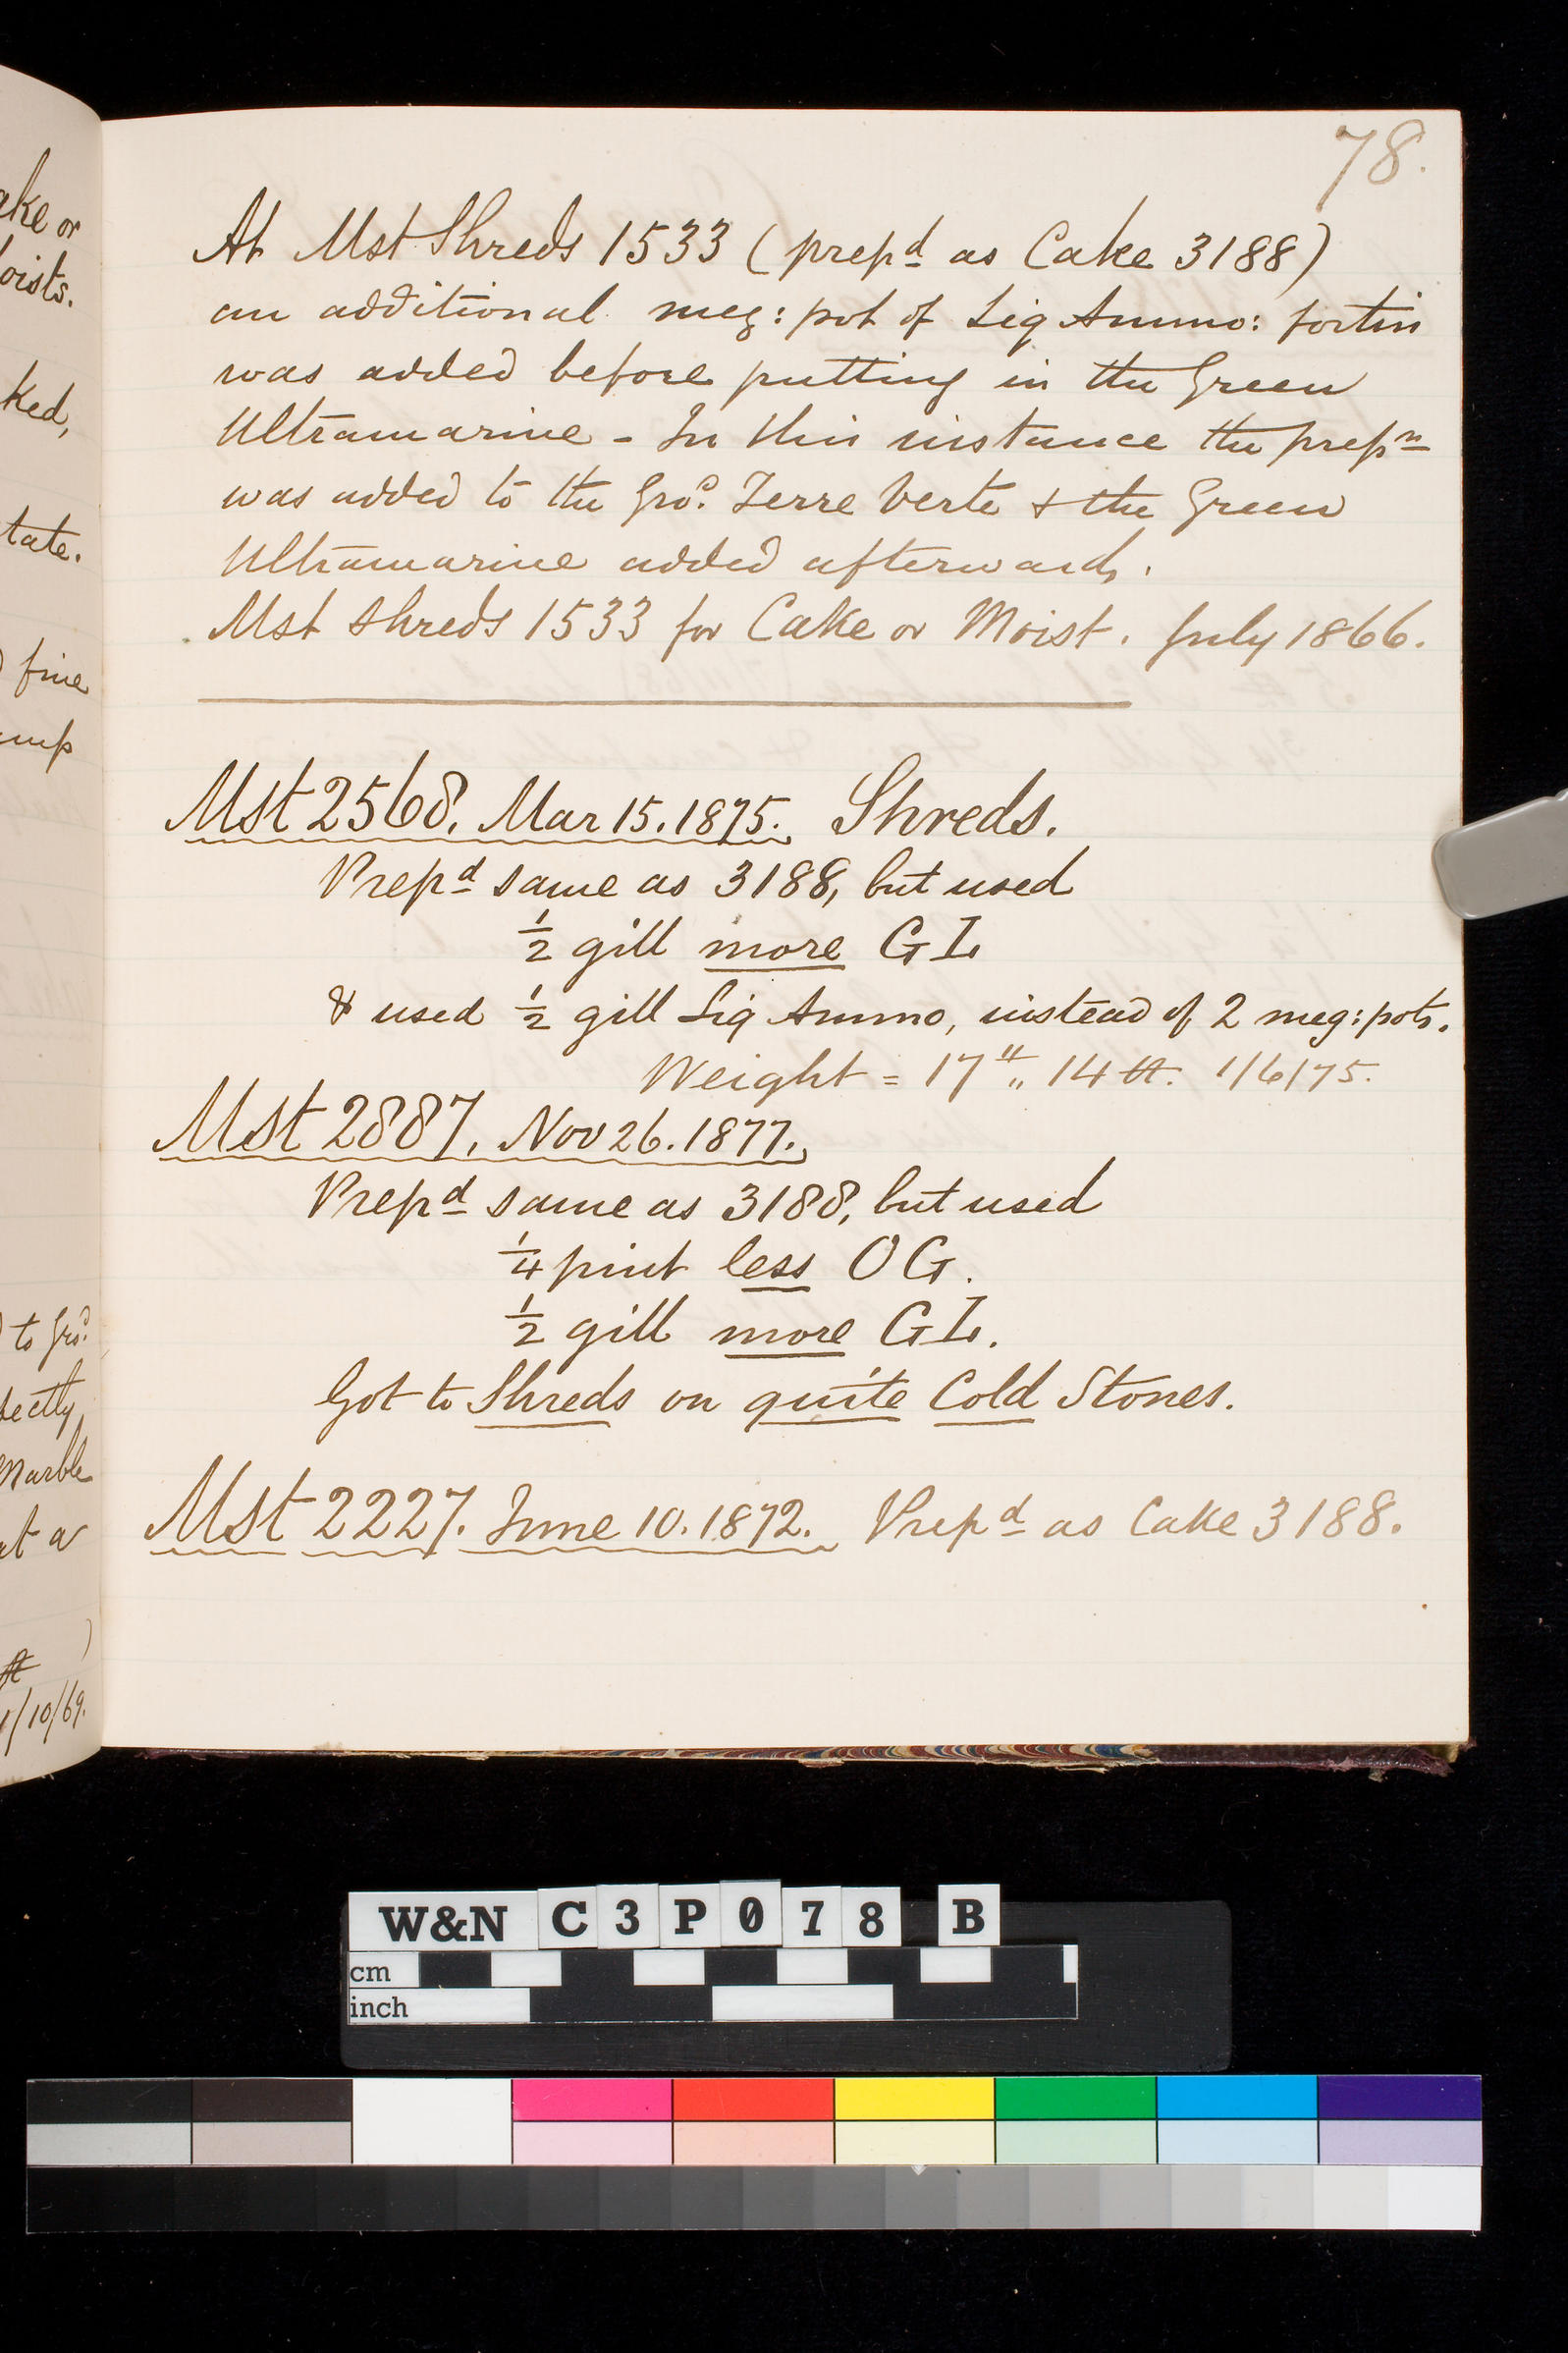 ake or
oists.
ked,
tate.
fine
ump
to Gro.d
fectly,
Marble
at a
1/10/69.
78.
At Mst Shreds 1533 (prepd as Cake 3188)
an additional meg: pot of Liq Ammo: fortis
was added before putting in the Green
Ultramarine - In this instance the prepn
was added to the Gro.d Terre Verte & the Green
Ultramarine added afterwards.
Mst shreds 1533 for Cake or Moist. July 1866.
Mst 2568. Mar 15. 1875. Shreds.
Prepd same as 3188, but used
½ gill more GL
& used ½ gill Liq Ammo, instead of 2 meg: pots.
Weight = 17" „ 14 lt. 1/6/75.
Mst 2887. Nov 26. 1877.
Prepd same as 3188, but used
¼ pint less OG.
½ gill more GL.
Got to Shreds on quite Cold Stones.
Mst 2227. June 10. 1872. Prepd as Cake 3188.
W&N C3P078 B
cm
inch